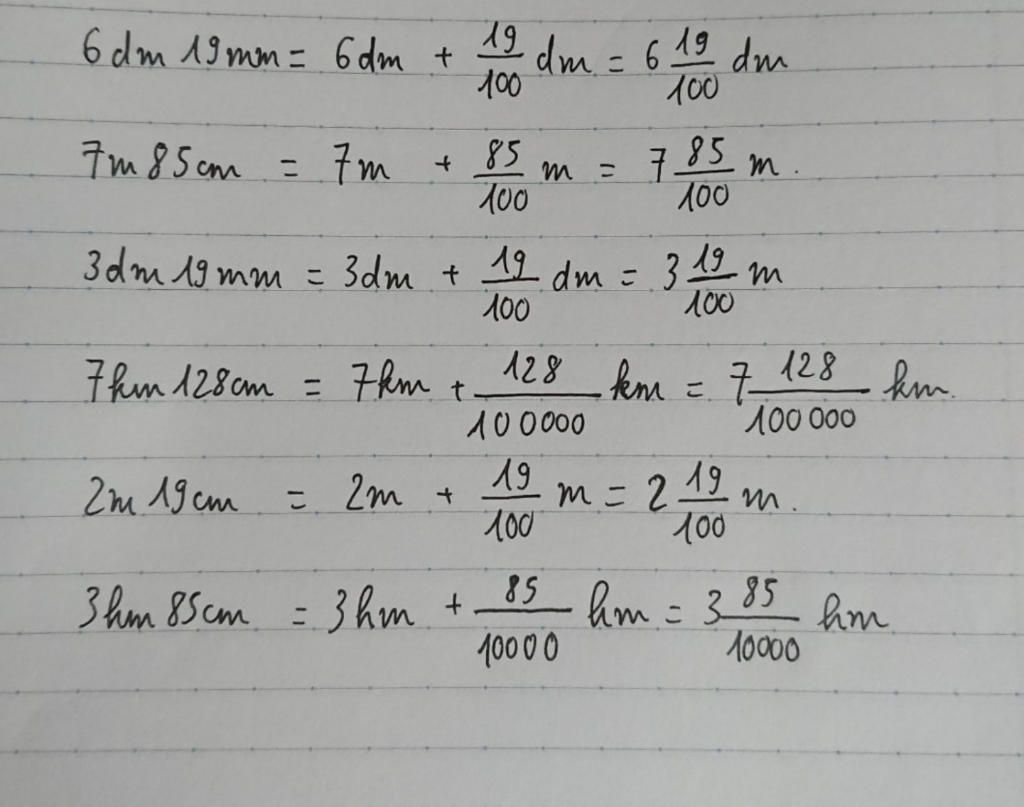 6dm 19mm = 6dm + 19/100 dm = 6 19/100 dm
7m 85cm = 7m + 85/100 m = 7 85/100 m.
3dm 19mm = 3dm + 19/100 dm = 3 19/100 m
7km 128cm = 7km + 128/100000 km = 7 128/100000 km.
2m 19cm = 2m + 19/100 m = 2 19/100 m.
3hm 85cm = 3hm + 85/10000 hm = 3 85/10000 hm